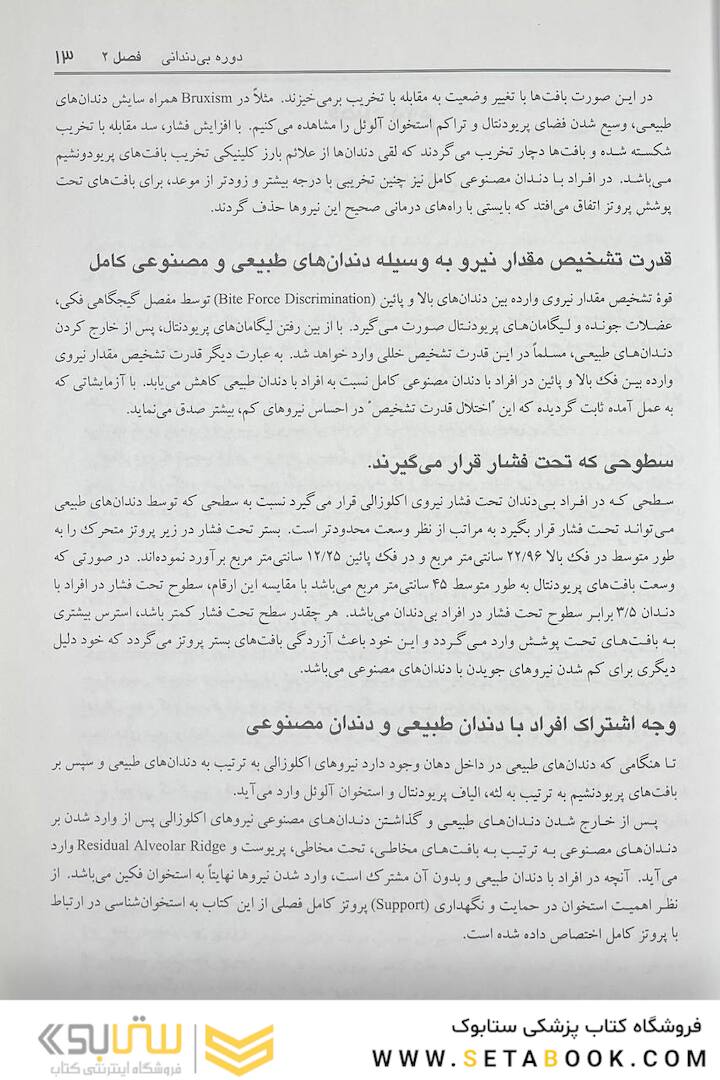 دوره بی‌دندانی فصل ۲ ۱۳
در این صورت بافت‌ها با تغییر وضعیت به مقابله با تخریب برمی‌خیزند. مثلاً در Bruxism همراه سایش دندان‌های
طبیعی، وسیع شدن فضای پریودنتال و تراکم استخوان آلوئل را مشاهده می‌کنیم. با افزایش فشار، سد مقابله با تخریب
شکسته شده و بافت‌ها دچار تخریب می‌گردند که لقی دندان‌ها از علائم بارز کلینیکی تخریب بافت‌های پریودونشیم
می‌باشد. در افراد با دندان مصنوعی کامل نیز چنین تخریبی با درجه بیشتر و زودتر از موعد، برای بافت‌های تحت
پوشش پروتز اتفاق می‌افتد که بایستی با راه‌های درمانی صحیح این نیروها حذف گردند.
قدرت تشخیص مقدار نیرو به وسیله دندان‌های طبیعی و مصنوعی کامل
قوهٔ تشخیص مقدار نیروی وارده بین دندان‌های بالا و پائین (Bite Force Discrimination) توسط مفصل گیجگاهی فکی،
عضلات جونده و لیگامان‌های پریودنتال صورت می‌گیرد. با از بین رفتن لیگامان‌های پریودنتال، پس از خارج کردن
دندان‌های طبیعی، مسلماً در این قدرت تشخیص خللی وارد خواهد شد. به عبارت دیگر قدرت تشخیص مقدار نیروی
وارده بین فک بالا و پائین در افراد با دندان مصنوعی کامل نسبت به افراد با دندان طبیعی کاهش می‌یابد. با آزمایشاتی که
به عمل آمده ثابت گردیده که این "اختلال قدرت تشخیص" در احساس نیروهای کم، بیشتر صدق می‌نماید.
سطوحی که تحت فشار قرار می‌گیرند.
سطحی که در افراد بی‌دندان تحت فشار نیروی اکلوزالی قرار می‌گیرد نسبت به سطحی که توسط دندان‌های طبیعی
می‌تواند تحت فشار قرار بگیرد به مراتب از نظر وسعت محدودتر است. بستر تحت فشار در زیر پروتز متحرک را به
طور متوسط در فک بالا ۲۲/۹۶ سانتی‌متر مربع و در فک پائین ۱۲/۲۵ سانتی‌متر مربع برآورد نموده‌اند. در صورتی که
وسعت بافت‌های پریودنتال به طور متوسط ۴۵ سانتی‌متر مربع می‌باشد با مقایسه این ارقام، سطوح تحت فشار در افراد با
دندان ۳/۵ برابر سطوح تحت فشار در افراد بی‌دندان می‌باشد. هر چقدر سطح تحت فشار کمتر باشد، استرس بیشتری
به بافت‌های تحت پوشش وارد می‌گردد و این خود باعث آزردگی بافت‌های بستر پروتز می‌گردد که خود دلیل
دیگری برای کم شدن نیروهای جویدن با دندان‌های مصنوعی می‌باشد.
وجه اشتراک افراد با دندان طبیعی و دندان مصنوعی
تا هنگامی که دندان‌های طبیعی در داخل دهان وجود دارد نیروهای اکلوزالی به ترتیب به دندان‌های طبیعی و سپس بر
بافت‌های پریودنشیم به ترتیب به لثه، الیاف پریودنتال و استخوان آلوئل وارد می‌آید.
پس از خارج شدن دندان‌های طبیعی و گذاشتن دندان‌های مصنوعی نیروهای اکلوزالی پس از وارد شدن بر
دندان‌های مصنوعی به ترتیب به بافت‌های مخاطی، تحت مخاطی، پریوست و Residual Alveolar Ridge وارد
می‌آید. آنچه در افراد با دندان طبیعی و بدون آن مشترک است، وارد شدن نیروها نهایتاً به استخوان فکین می‌باشد. از
نظر اهمیت استخوان در حمایت و نگهداری (Support) پروتز کامل فصلی از این کتاب به استخوان‌شناسی در ارتباط
با پروتز کامل اختصاص داده شده است.
فروشگاه کتاب پزشکی ستابوک
WWW.SETABOOK.COM
ستابوک
فروشگاه اینترنتی کتاب